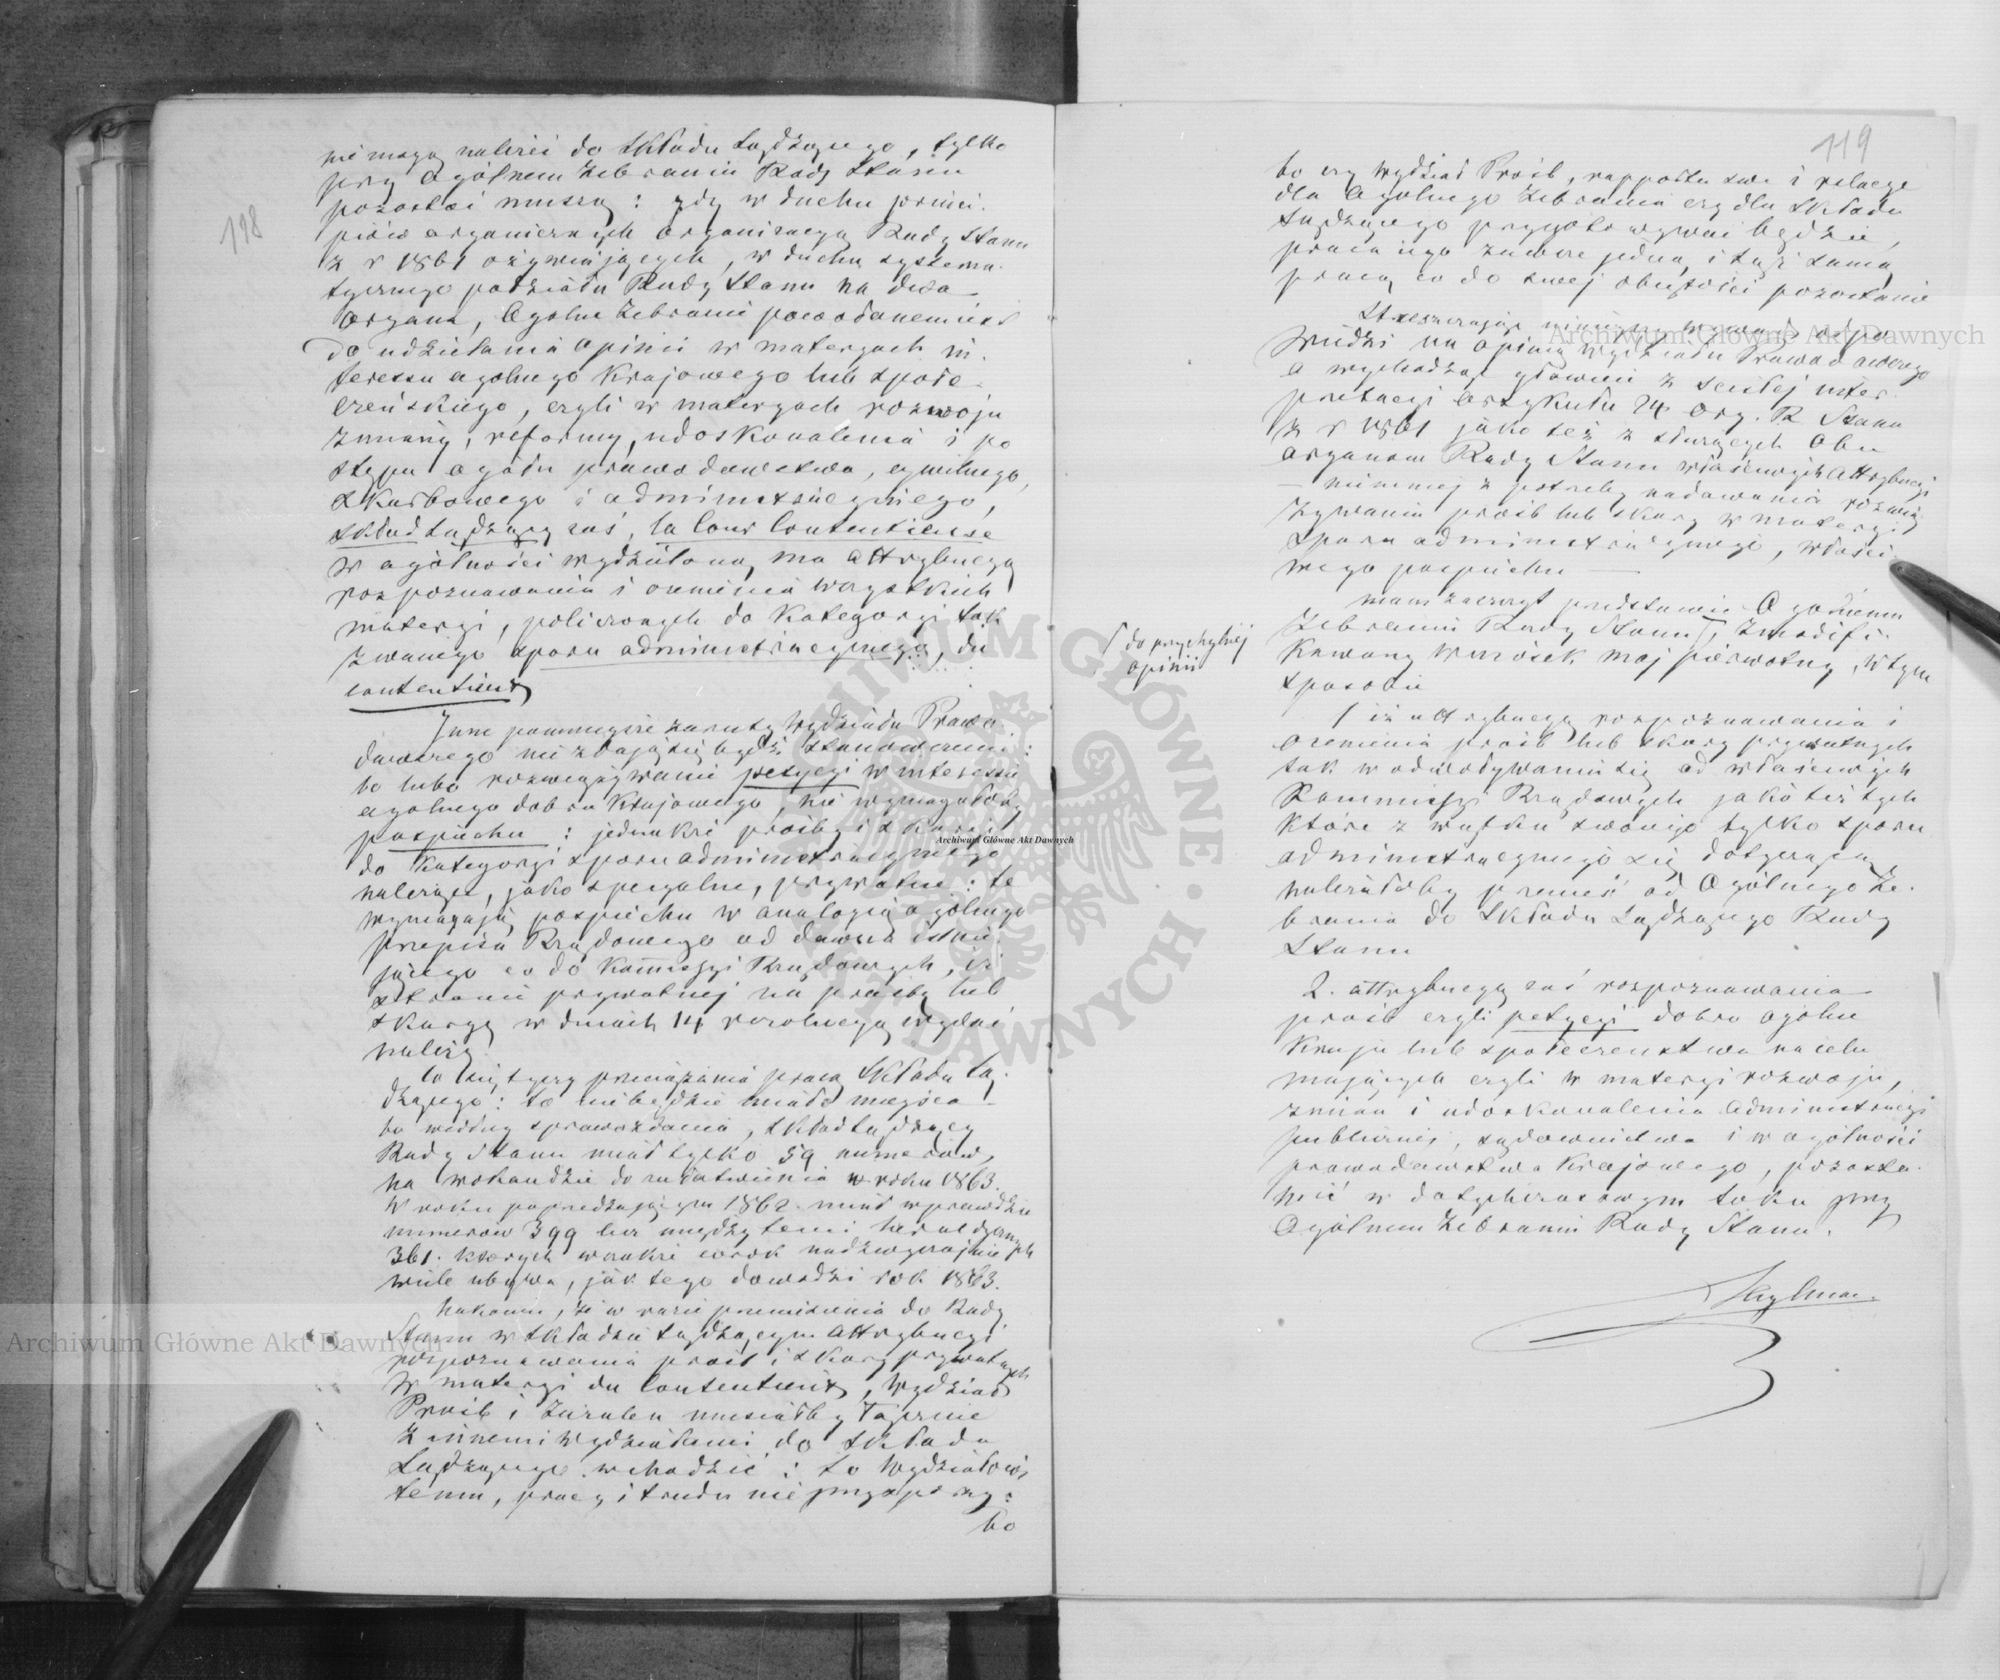 198
nie mogą należeć do Składu Sądzącego, tylko
przy Ogólnem Zebraniu Rady Stanu
pozostać muszą: gdy w duchu princi-
piów organicznych organizacyą Rady Stanu
z r 1861 ożywiających, w duchu systema-
tycznego podziału Rady Stanu na dwa
organa, Ogólne Zebranie powołanem jest
do udzielania opinii w materyach in-
teressu ogólnego Krajowego lub społe-
czeńskiego, czyli w materyach rozwoju
zmiany, reformy, udoskonalenia i po
stępu ogółu prawodawstwa, cywilnego,
skarbowego i administracyjnego,
skład sądzący zaś, la Cour Contentieuse
w ogólności wydzieloną ma attrybucyą
rozpoznawania i ocenienia wszystkich
materyi, policzonych do kategoryi tak
zwanego sporu administracyjnego, du
contentieux
Inne pomniejsze zarzuty Wydziału Prawo
dawczego nie zdają się bydź stanowczemi:
bo lubo rozwiązywanie petycyi w interessie
ogólnego dobra Krajowego, nie wymagałoby
pospiechu: jednakże prośby i skargi
do kategoryi sporu administracyjnego
należące, jako specyalne, prywatne: te
wymagają pospiechu w analogią ogólnego
przepisu Rządowego od dawna istnie-
jącego co do Kommissyi Rządowych, iż
stronie prywatnej na prośbę lub
skargę w dniach 14 rezolucyą wydać
należy.
Co się tyczy przeciążenia pracą Składu Są-
dzącego: to nie będzie miało miejsca
bo według sprawozdania, Skład Sądzący
Rady Stanu miał tylko 59 numerów,
na wokandzie do załatwienia w roku 1863.
W roku poprzedzającym 1862 miał wprawdzie
numerów 399 lecz między temi heraldycznych
361. których wszakże corok nadzwyczajnie
wiele ubywa, jak tego dowodzi rok 1863.
Nakoniec, że w razie przeniesienia do Rady
Stanu w składzie sądzącym attrybucyi
rozpoznawania próśb i skarg prywatnych
w materyi du Contentieux, Wydział
Próśb i Zażaleń musiałby łącznie
z innemi Wydziałami do Składu
Sądzącego wchodzić: to Wydziałowi
temu, pracy i trudu nie przysporzy:
bo
119
bo czy Wydział Próśb, rapporta swe i relacye
dla Ogólnego Zebrania czy dla Składu
Sądzącego przygotowywać będzie,
praca jego zawsze jedną i tąż samą
pracą co do swej objętości pozostanie
Streszczając niniejszy wywód odpo
wiedzi na opinią Wydziału Prawodawczego
a wychodząc głównie z ścisłej inter-
pretacyi artykułu 24 Org. R Stanu
z r 1861 jako też z służących obu
organom Rady Stanu właściwych attrybucyi
— niemniej z potrzeby nadawania rozwią
zywaniu próśb lub skarg w materyi
sporu administracyjnego, właści-
wego pospiechu —
mam zaszczyt przedstawić Ogólnemu
Zebraniu Rady Stanu, zmodifi-
kowany wniosek mój pierwotny, w tym
sposobie
do przychylnej
opinii
1 iż attrybucyą rozpoznawania i
ocenienia próśb lub skarg prywatnych
tak w odwoływaniu się od właściwych
Kommissyi Rządowych jako też tych
które z wątku swoiego tylko sporu
administracyjnego się dotyczą
należałoby przenieść od Ogólnego Ze-
brania do Składu Sądzącego Rady
Stanu
2. attrybucyą zaś rozpoznawania
próśb czyli petycyi dobro ogółu
Kraju lub społeczeństwa na celu
mających czyli w materyi rozwoju,
zmian i udoskonalenia administracyi
publicznej, sądownictwa i w ogólności
prawodawstwa Krajowego, pozosta-
wić w dotychczasowym toku przy
Ogólnem Zebraniu Rady Stanu.
Archiwum Główne Akt Dawnych
Archiwum Główne Akt Dawnych
Archiwum Główne Akt Dawnych
ARCHIWUM GŁÓWNE AKT DAWNYCH